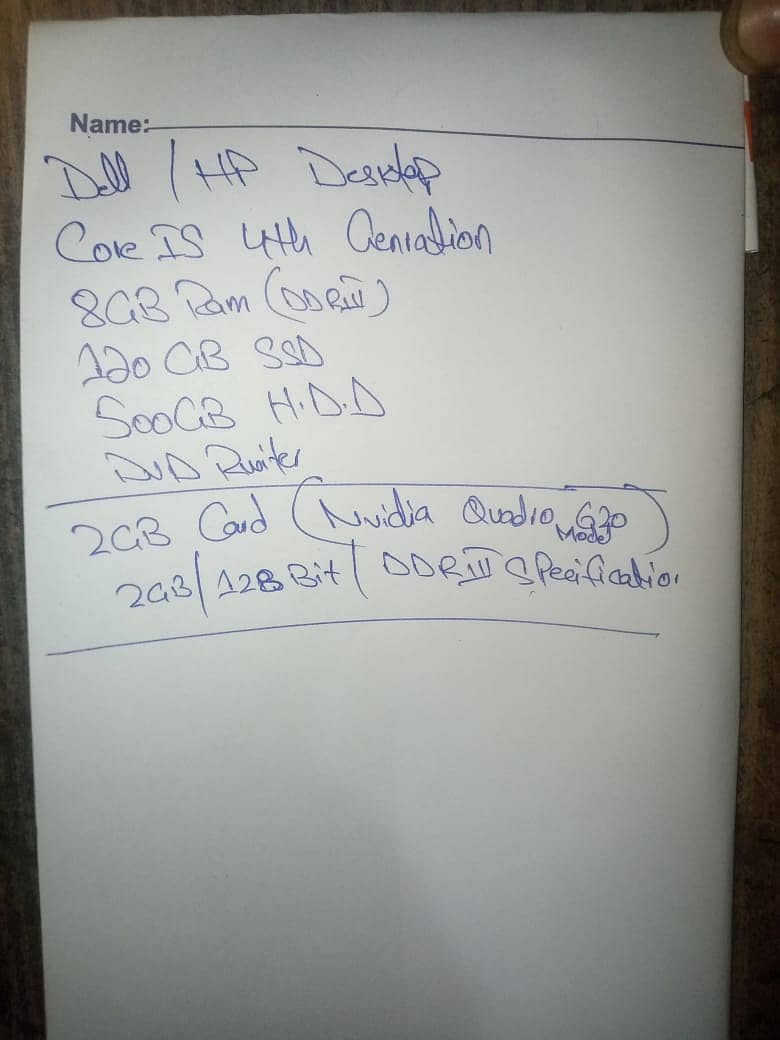 Name:
Dell / HP Desktop
Core I5 4th Genration
8GB Ram (DDRIII)
120 GB SSD
500GB H.D.D
DVD Rwiter
2GB Card (Nvidia Quadro 620 Model)
2GB / 128 Bit / DDRIII SPecification